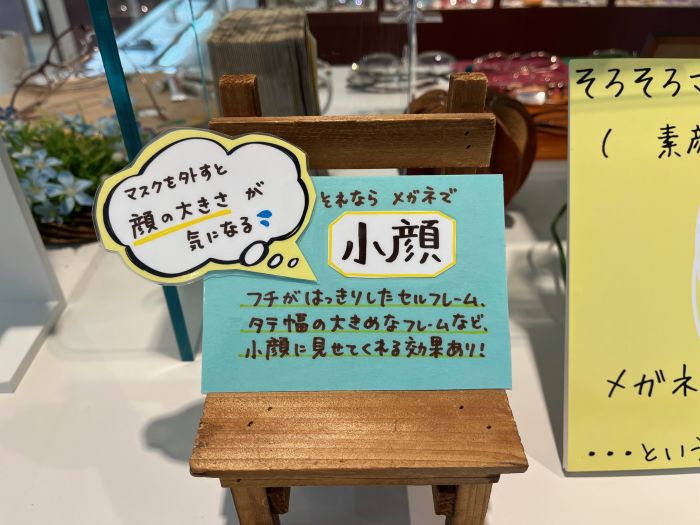 マスクを外すと
顔の大きさが
気になる
それなら メガネで
小顔
フチがはっきりしたセルフレーム、
タテ幅の大きめなフレームなど、
小顔に見せてくれる効果あり!
そろそろ
( 素顔
メガネ
・・・とい